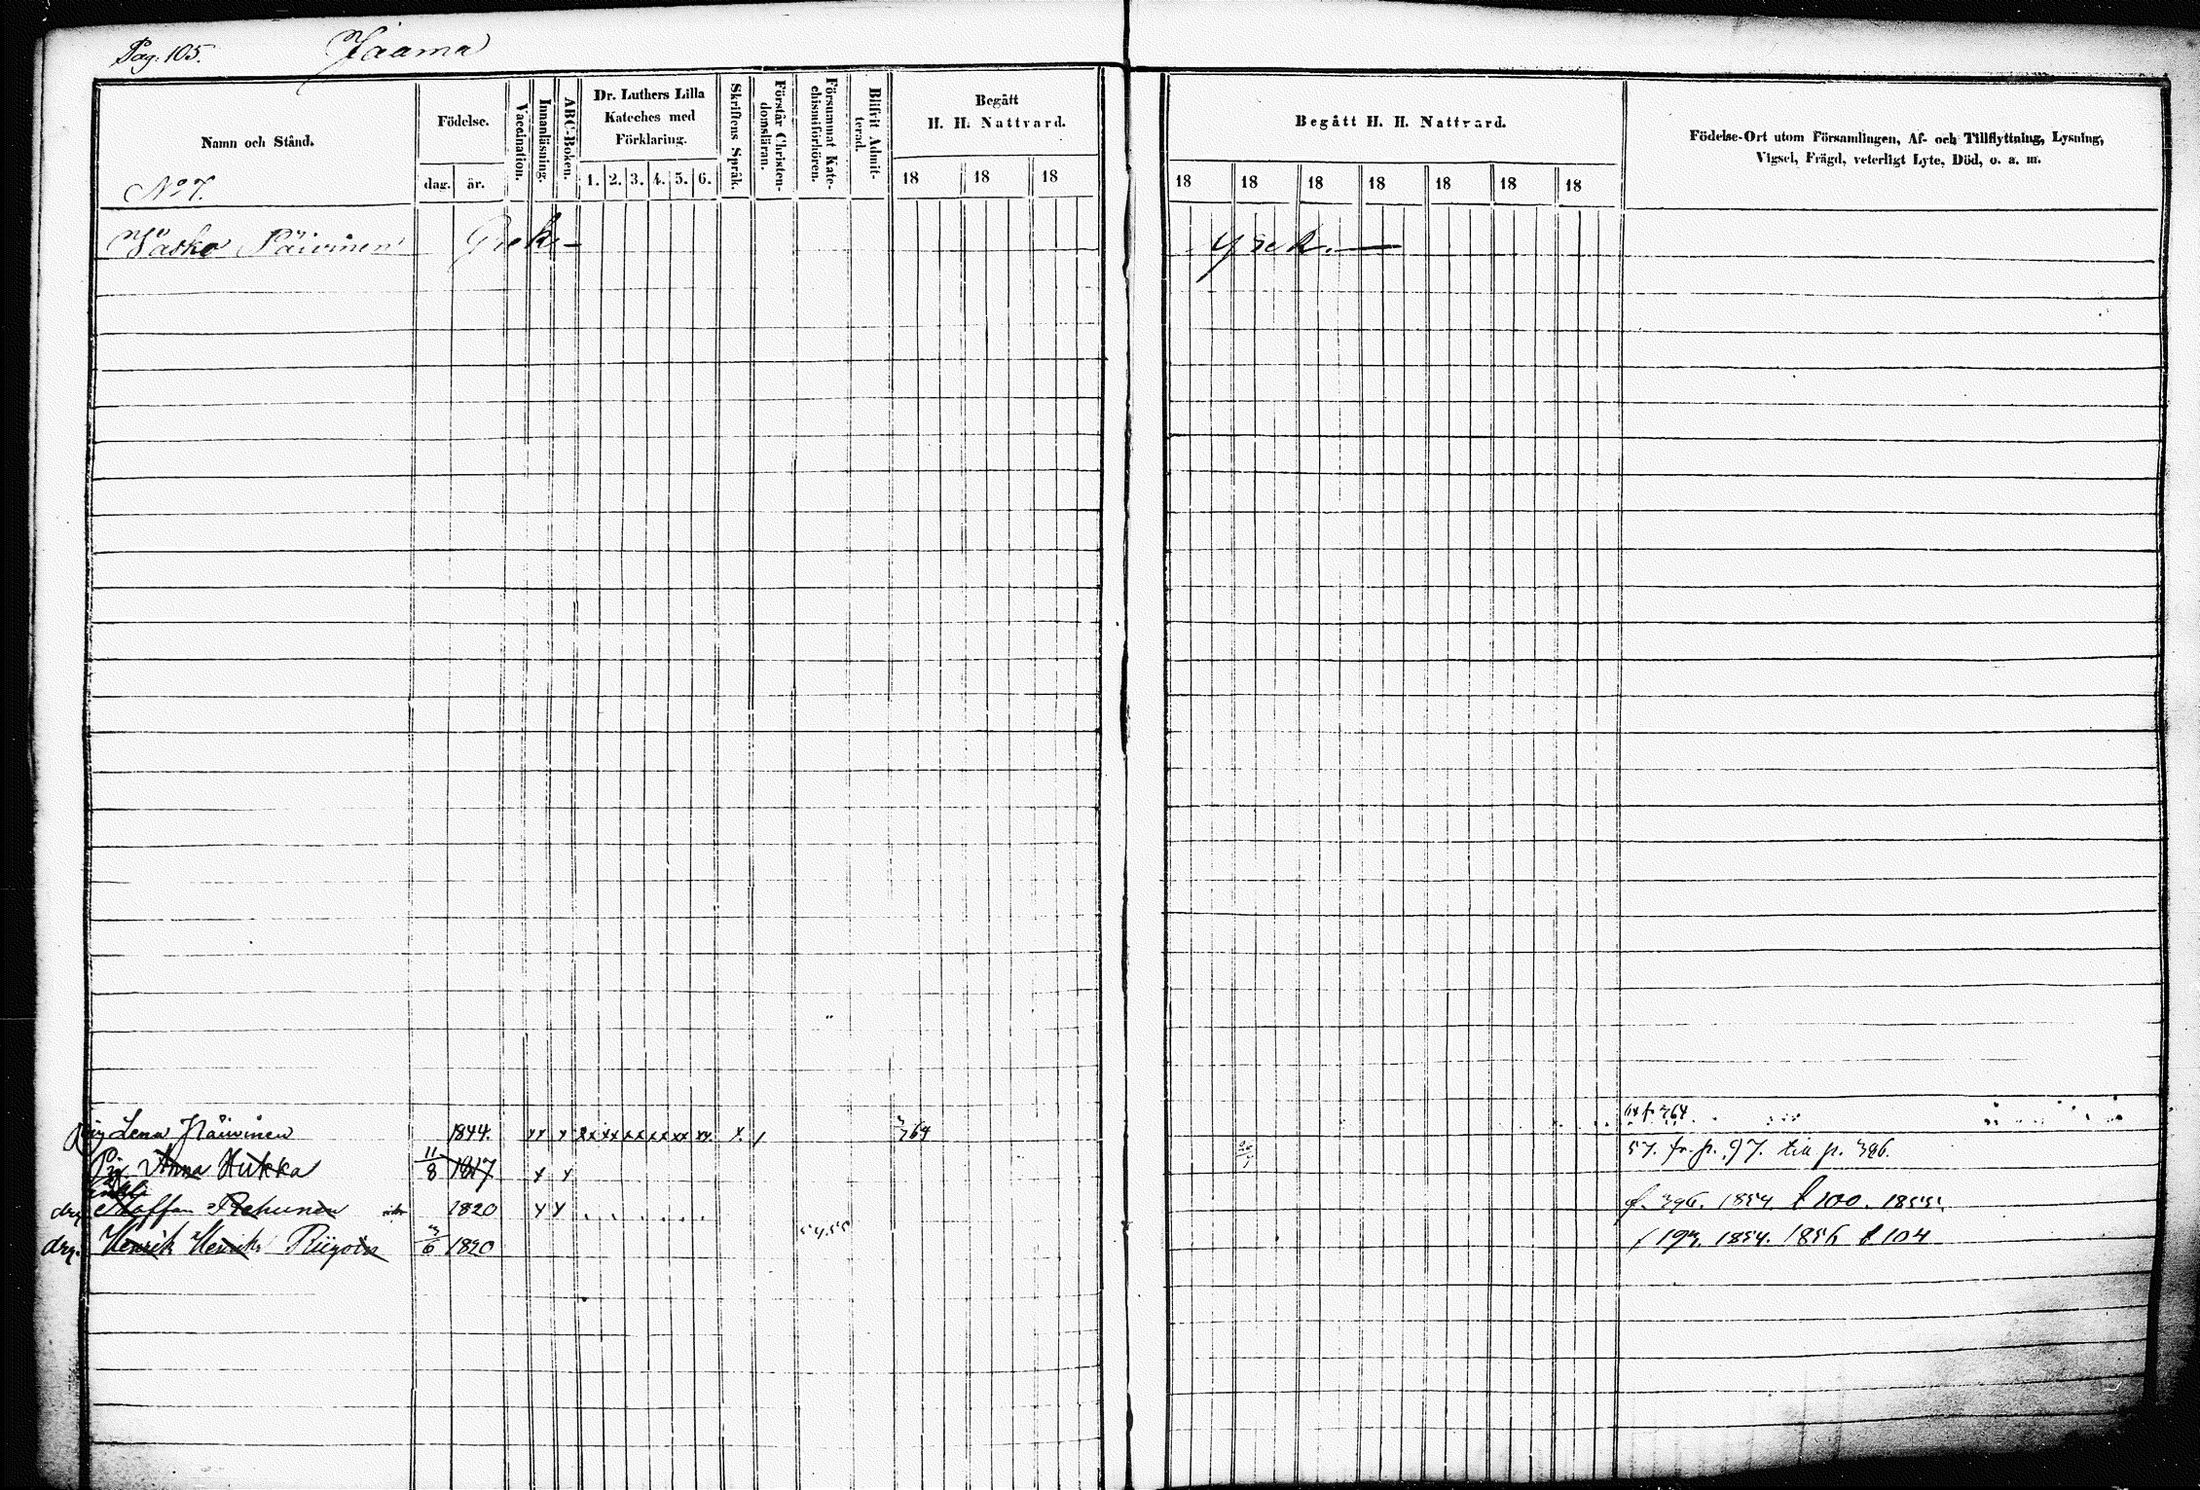 Pag. 105. Jaama
Namn och Stånd.
Födelse.
dag. år.
Vaccination.
Innanläsning.
ABC-Boken.
Dr. Luthers Lilla
Kateches med
Förklaring.
1. 2. 3. 4. 5. 6.
Skriftens Språk.
Förstår Christen-
domsläran.
Försummat Kate-
chismiförhören.
Blifvit Admit-
terad.
Begått
H. H. Nattvard.
18 18 18
Begått H. H. Nattvard.
18 18 18 18 18 18 18
Födelse-Ort utom Församlingen, Af- och Tillflyttning, Lysning,
Vigsel, Frägd, veterligt Lyte, Död, o. a. m.
No 7.
Wasko Päivinen Grek. Grek.
Lena Päivinen 1844. 364
Pig. Anna Hukka 11/8 1817 57. fr. p. 97. till p. 396.
drg. Staffan 1820 f. 396. 1854. t 100. 1855.
drg. Henrik Henriks 3/6 1820 54.55 f 193. 1854. 1856 t 104